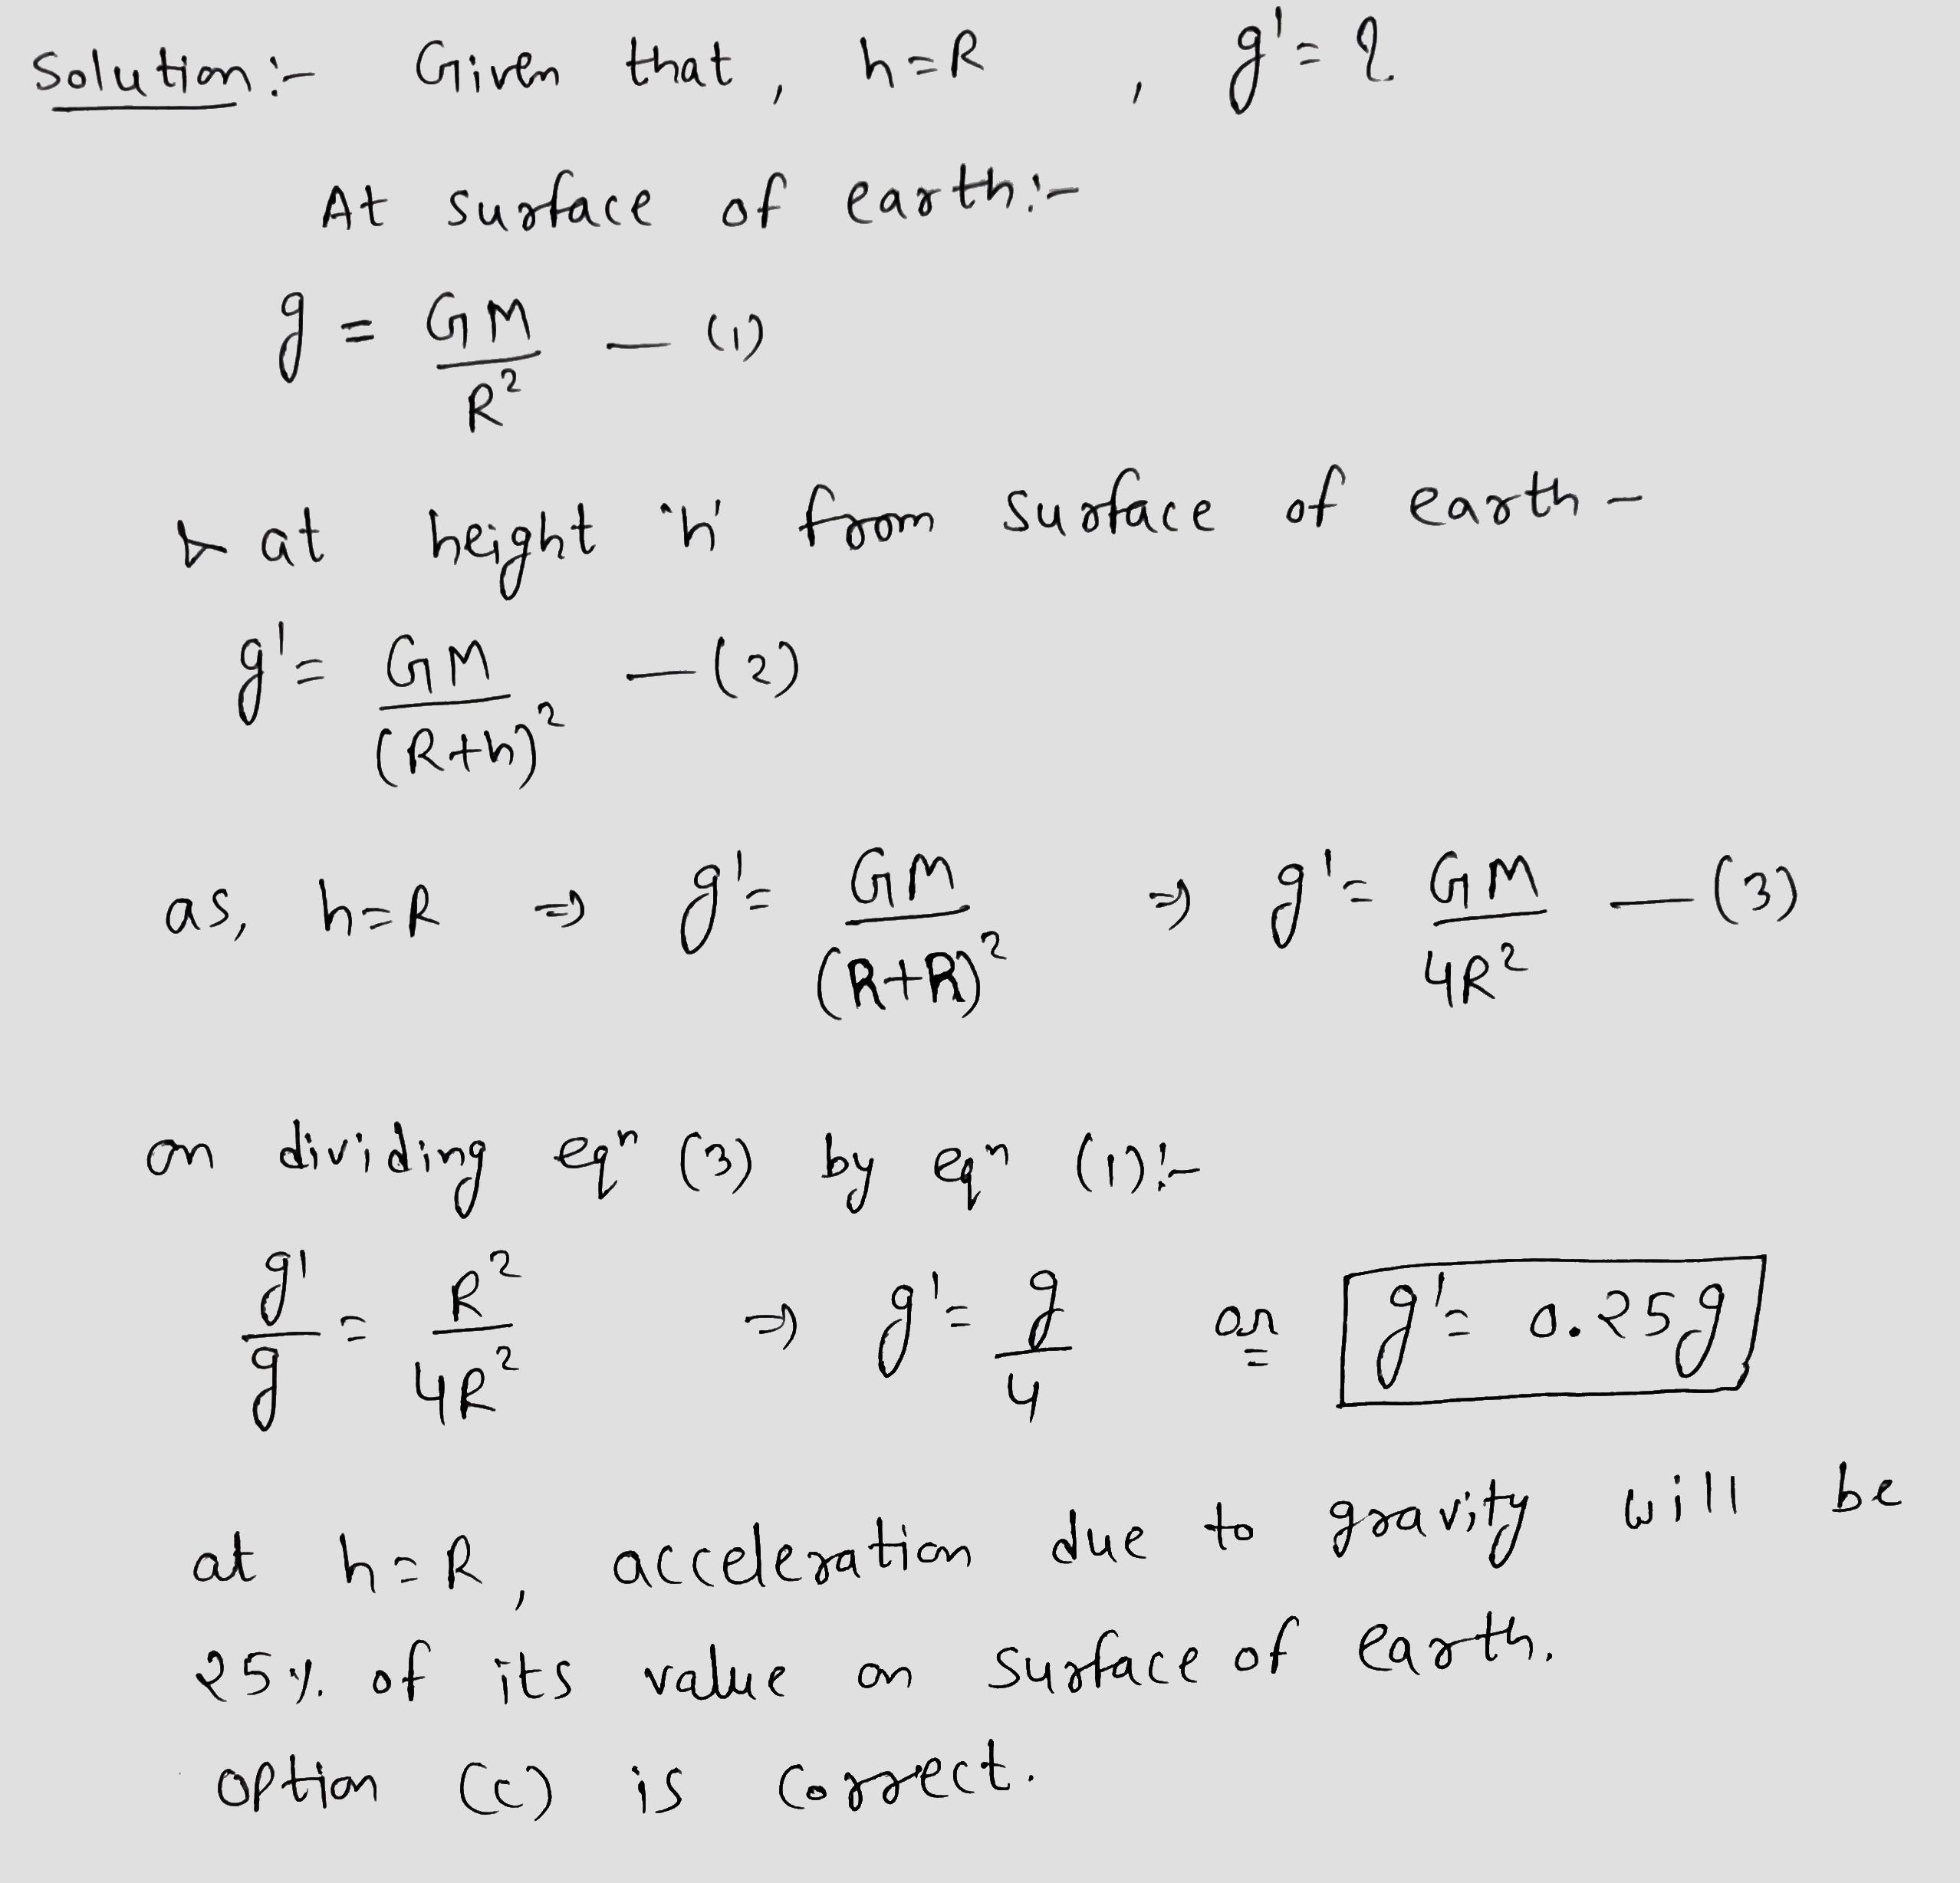 Solution:- Given that, h=R , g'=?
At surface of earth:-
g = GM/R² — (1)
& at height 'h' from surface of earth -
g' = GM/(R+h)² — (2)
as, h=R ⇒ g' = GM/(R+R)² ⇒ g' = GM/4R² — (3)
on dividing eqⁿ (3) by eqⁿ (1):-
g'/g = R²/4R² ⇒ g' = g/4 or g' = 0.25g
at h=R, acceleration due to gravity will be
25% of its value on surface of earth.
option (c) is correct.